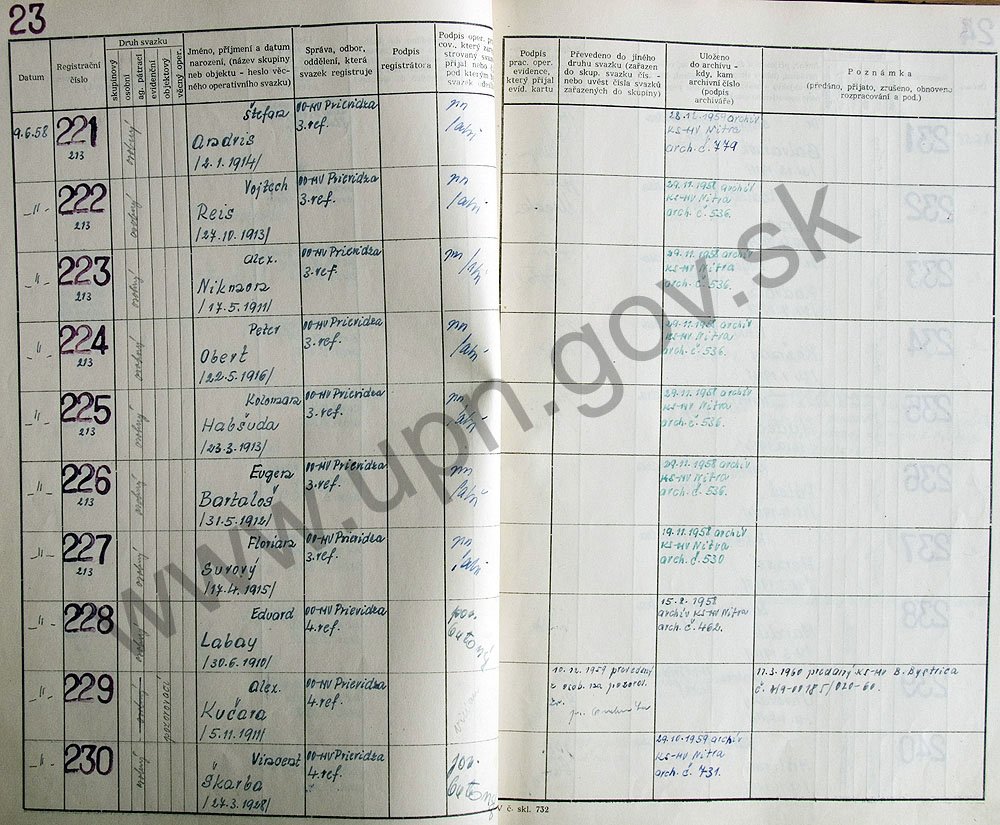 23
Datum
Registrační číslo
Druh svazku
skupinový
osobní
ag. pátrací
evidenční
objektový
věcný oper.
Jméno, příjmení a datum
narození, (název skupiny
neb objektu - heslo věc-
ného operativního svazku)
Správa, odbor,
oddělení, která
svazek registruje
Podpis
registrátora
Podpis oper. p
cov., který za
strovaný sva
přijal nebo
pod kterým
svazek
Podpis
prac. oper.
evidence,
který přijal
evid. kartu
Převedeno do jiného
druhu svazku (zařazen
do skup. svazku čís. -
nebo uvést čísla svazků
zařazených do skupiny)
Uloženo
do archivu -
kdy, kam
archivní číslo
(podpis
archiváře)
Poznámka
(předáno, přijato, zrušeno, obnoveno
rozpracování a pod.)
9.6.58
221
213
osobný
Štefan
Andris
/2.1.1914/
OO-MV Prievidza
3.ref.
28.12.1959 archív
KS-MV Nitra
arch.č.779
-"-
222
213
osobný
Vojtech
Reis
/27.10.1913/
OO-MV Prievidza
3.ref.
29.11.1958 archív
KS-MV Nitra
arch.č.536.
-"-
223
213
osobný
Alex.
Nikmon
/17.5.1911/
OO-MV Prievidza
3.ref.
29.11.1958 archív
KS-MV Nitra
arch.č.536.
-"-
224
213
osobný
Peter
Obert
/22.5.1916/
OO-MV Prievidza
3.ref.
29.11.1958 archív
KS-MV Nitra
arch.č.536.
-"-
225
213
osobný
Koloman
Habšuda
/23.3.1913/
OO-MV Prievidza
3.ref.
29.11.1958 archív
KS-MV Nitra
arch.č.536.
-"-
226
213
osobný
Eugen
Bartaloš
/31.5.1912/
OO-MV Prievidza
3.ref.
29.11.1958 archív
KS-MV Nitra
arch.č.536.
-"-
227
213
osobný
Florian
Surový
/17.4.1915/
OO-MV Prievidza
3.ref.
19.11.1958 archív
KS-MV Nitra
arch.č.530
-"-
228
osobný
Eduard
Labay
/30.6.1910/
OO-MV Prievidza
4.ref.
15.8.1958
archív KS-MV Nitra
arch.č.462.
-"-
229
osobný
pozorovací
Alex.
Kučara
/5.11.1911/
OO-MV Prievidza
4.ref.
10.12.1959 prevedený
z osob. na pozorol.
zv.
17.3.1960 predaný KS-MV B.Bystrica
-"-
230
osobný
Vincent
Škarba
/27.3.1928/
OO-MV Prievidza
4.ref.
29.10.1959 archív
KS-MV Nitra
arch.č.731.
V č. skl. 732
www.upn.gov.sk